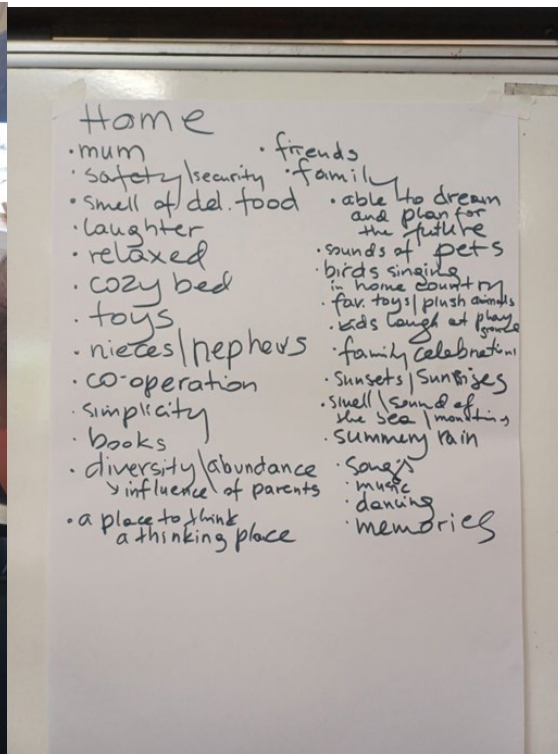 Home
• mum
• safety/security
• smell of del. food
• laughter
• relaxed
• cozy bed
• toys
• nieces/nephews
• co-operation
• simplicity
• books
• diversity/abundance
↳ influence of parents
• a place to think
a thinking place
• friends
• family
• able to dream
and plan for
the future
• sounds of pets
• birds singing
in home country
• fav. toys/plush animals
• kids laugh at play
ground
• family celebrations
• sunsets/sunrises
• smell/sound of
the sea/mountins
• summery rain
• songs
• music
• dancing
• memories